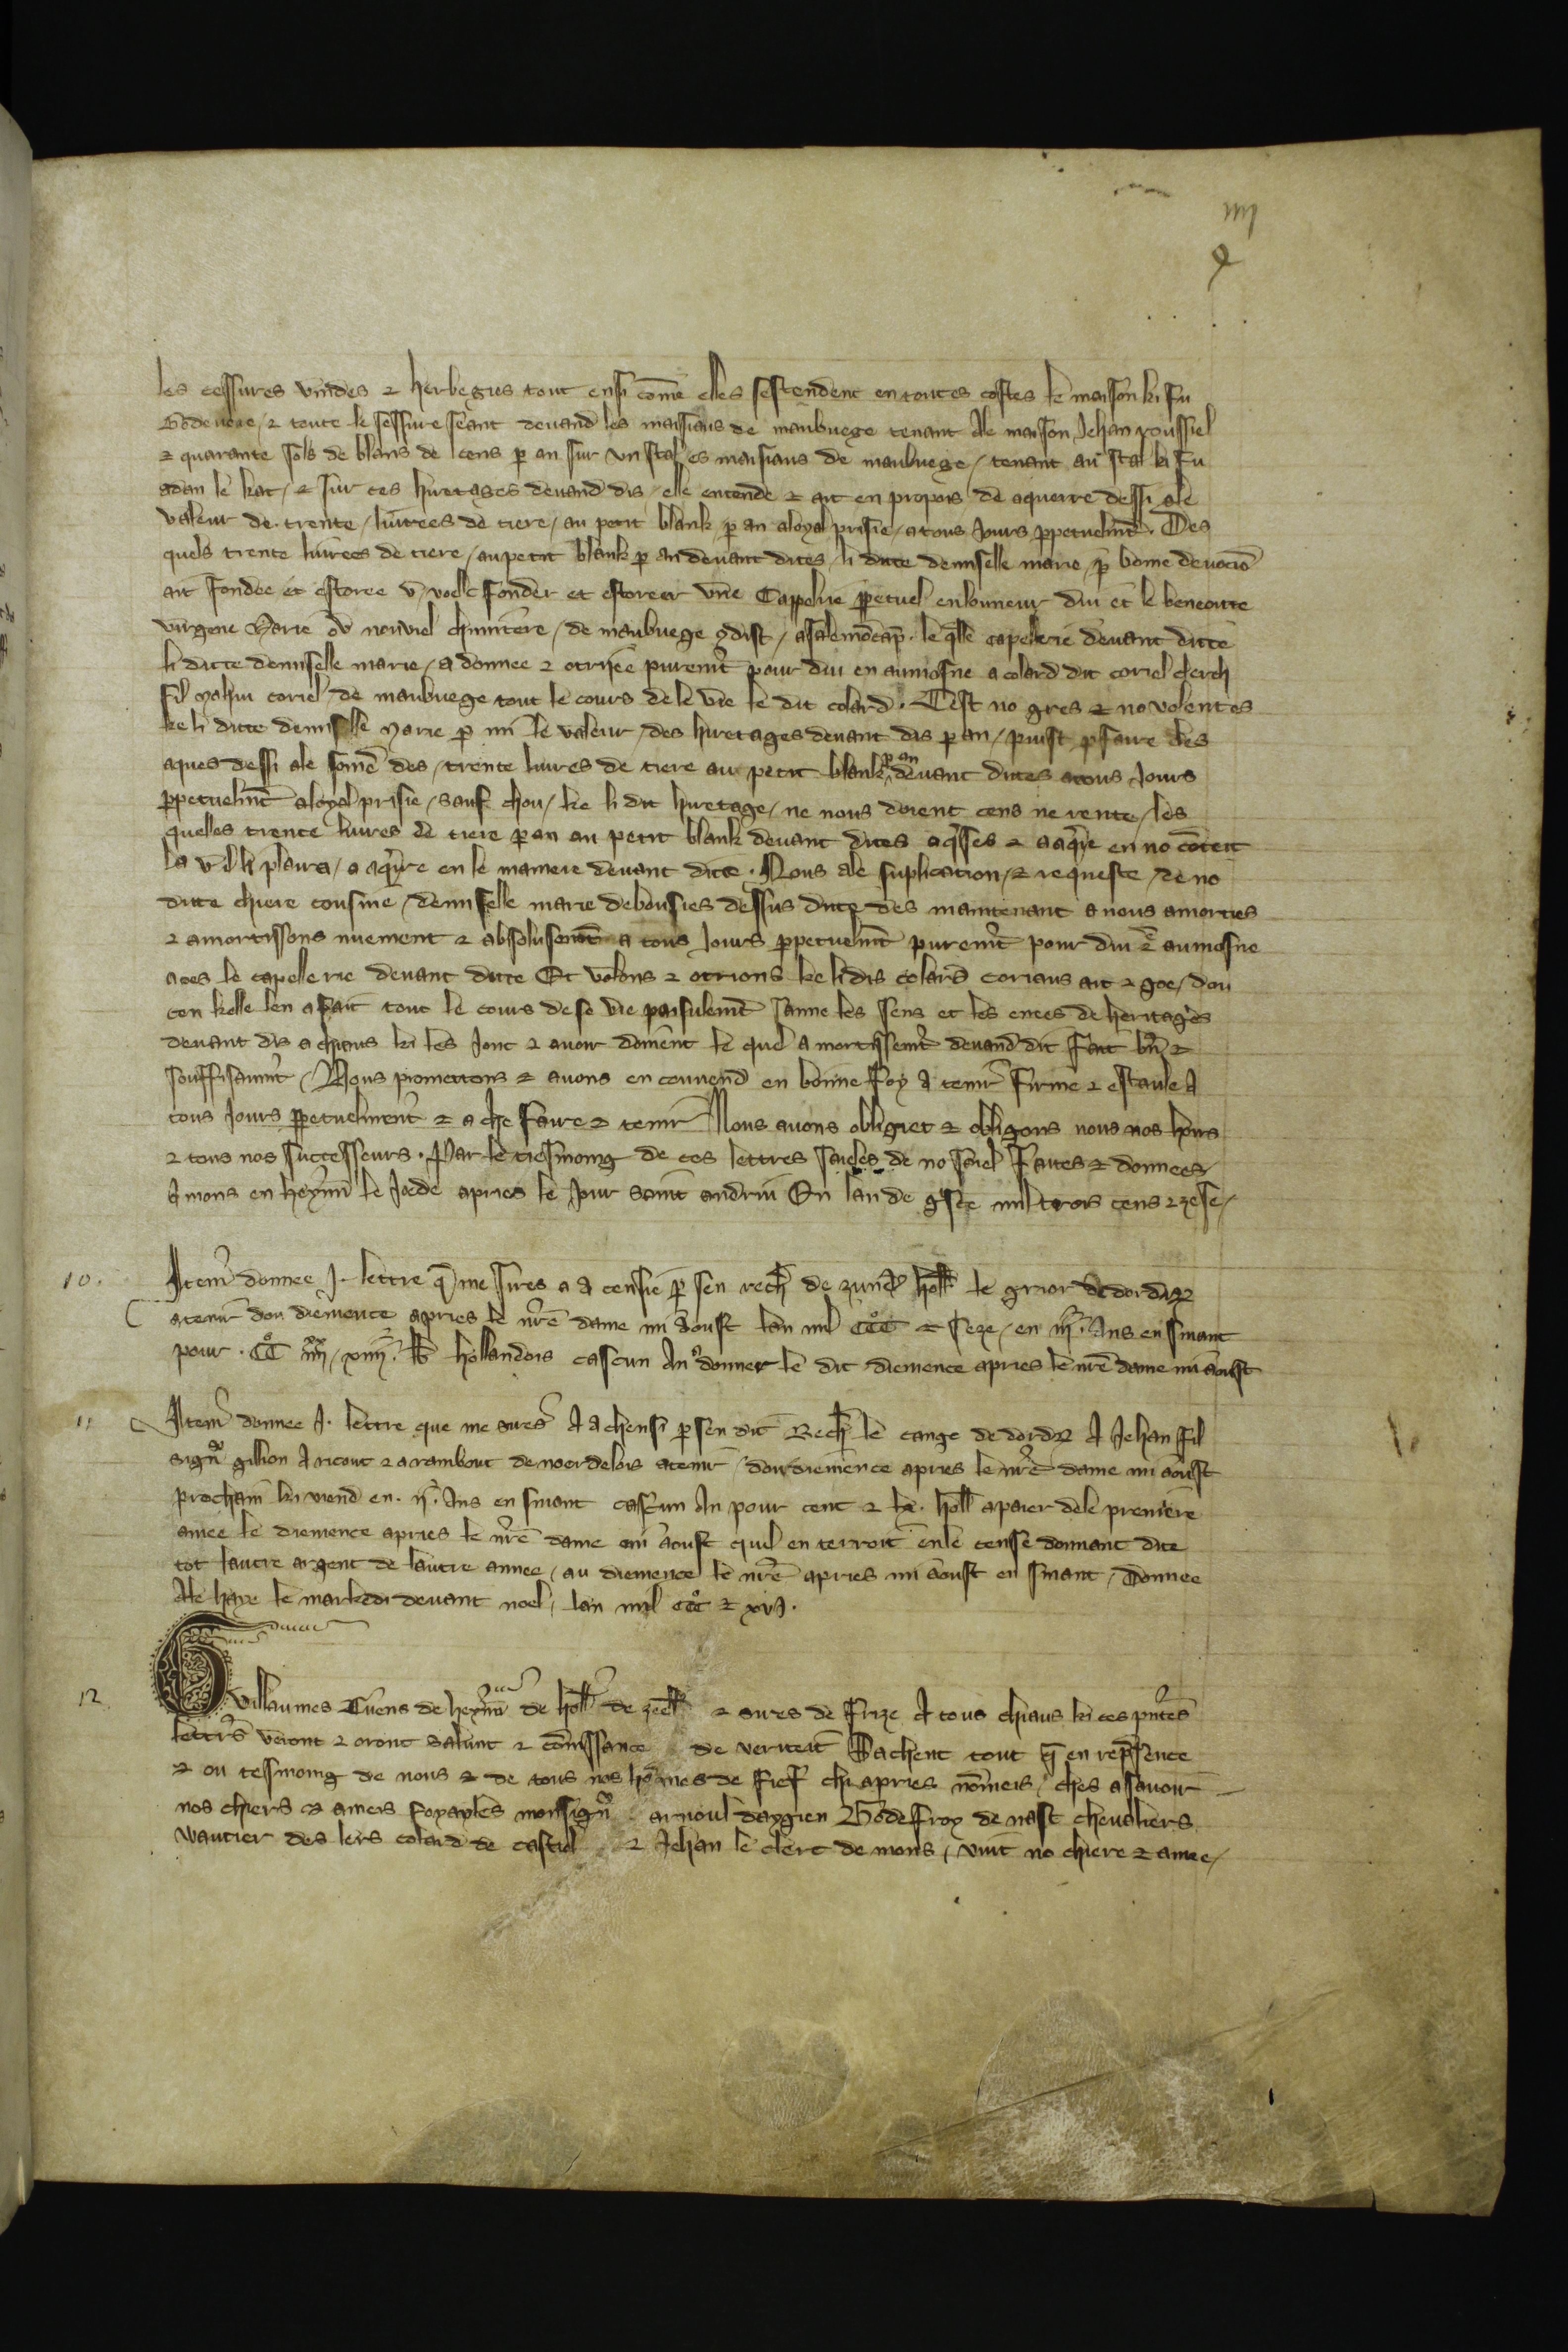 iiij
les cessures vuides ⁊ herbegies tout ensi cōme elles sestendent en toutes costes le maison ki fu
⁊ toute le sessure seant deuand les maisiaus de maubuege tenant ale maison Jehan roussiel
⁊ quarante sols de blans de cens p an sur vn stal es maisiaus de maubuege / tenant au stal ki fu
adan le kat / ⁊ sur ces hiretages deuand dis / elle entende ⁊ ait en propos de aquerre dessi ale
valeur de trente / liurees de tiere / au petit blank p an aloyal prisie / a tous Jours ppetuelmt. Des
quels trente liurees de tiere / au petit blank p an deuant dites / li dicte demiselle marie p bonne deuociō
ait fondee et estoree v voelle fonder et estorer vne Cappelrie ppetuel en lonneur diu et le beneoitte
virgene Marie ou nouuiel chimitere / de maubuege le qlle capellerie deuant ditte
li dicte demiselle marie / a donnee ⁊ otriiee puremt pour diu en aumosne a colard dit coriel clerch
fil mahiu coriel de maubuege tout le cours de le vie le dit colard. Cest no gres ⁊ no volentes
ke li dicte demiselle Marie p mi le valeur / des hiretages deuant dis p an / puist pfaire les
aques dessi ale somē des / trente liures de tiere au petit blank p an deuant dites atous Jours
ppetuelmt aloyal prisie / sauf chou / ke li dit hiretage / ne nous doient cens ne rente / les
quelles trente liures de tiere p an au petit blank deuant dites aqses ⁊ a aqre en no cōteit
la v il li plaira / a aqrre en le maniere deuant dicte. Nous ale suplication / ⁊ requeste / de no
dicte chiere cousine / demiselle marie debousies dessus dicte des maintenant a nous amorties
⁊ amortissons nuement ⁊ absolusemēt a tous Jours ppetuelmt puremt pour diu ē aumosne
a oes le capellerie deuant ditte Et volons ⁊ otrions ke li dis colard coriaus ait ⁊ goe / dou
con kelle len a fait tout le cours de se vie paisulemt sanne les sens et les enees de heritages
deuant dis a chiaus ki les Jont ⁊ auoir doment le quel a mortissemt deuand dit fait bn ⁊
souffisaumt / Nous promettons ⁊ auons en conuend en bonne foy A tenir firme ⁊ estaule A
tous Jours ppetuelment ⁊ a che faire ⁊ tenir Nous auons obligiet ⁊ obligons nous nos hoirs
⁊ tous nos successeurs. Par le tiesmoing de ces lettres saieles de no saiel Faites ⁊ donnees
A mons en heynn le Joede apries le Jour saint andriu En lan de gsce mil trois cens ⁊ zese /
10. Item donnee J. lettre q me sires a a censie p sen rech de holl le grior de dordr
atenir dou diemence apries le nre dame mi aoust lan mil CCC ⁊ seze / en iij. Ans en siuant
pour. CC iiij / xiiij. lb hollandois cascun An donner le dit diemence apries le nre dame mi aoust
11 Item donnee J. lettre que me sires A achensi p sen dit Rech le cange de dordr A Jehan fil
sign gillion A ricout ⁊ a rambout de noerdelois atenir / dou diemence apries le nre dame mi aoust
procham ki viend en. ij. Ans en siuant cascun An pour cent ⁊ lx. holl apaier dele premiere
anee le diemence apries le nre dame mi aoust quil en terroit enle cense donnant dite
tot lautre argent de lautre annee / au diemence le nre apries mi aoust en siuant / Donnee
Ale haye le markedi deuant noel / lan mil CCC ⁊ xvJ.
12 Guillaumes Cuens de heynn de holl de zeell ⁊ sires de frize A tous chiaus ki ces pntes
lettrs veront ⁊ oront salunt ⁊ cōnissance de veriteit Sachent tout q en repsence
⁊ ou tesmoing de nous ⁊ de tous nos hōmes de fief chi apries nōmeis / ches assauoir
nos chiers ⁊ ameis foyaules monsign arnoul daygien Godefroy de nast cheualiers
wautier des lers colard de castiel ⁊ Jehan le clerc de mons / vint no chiere ⁊ amee /